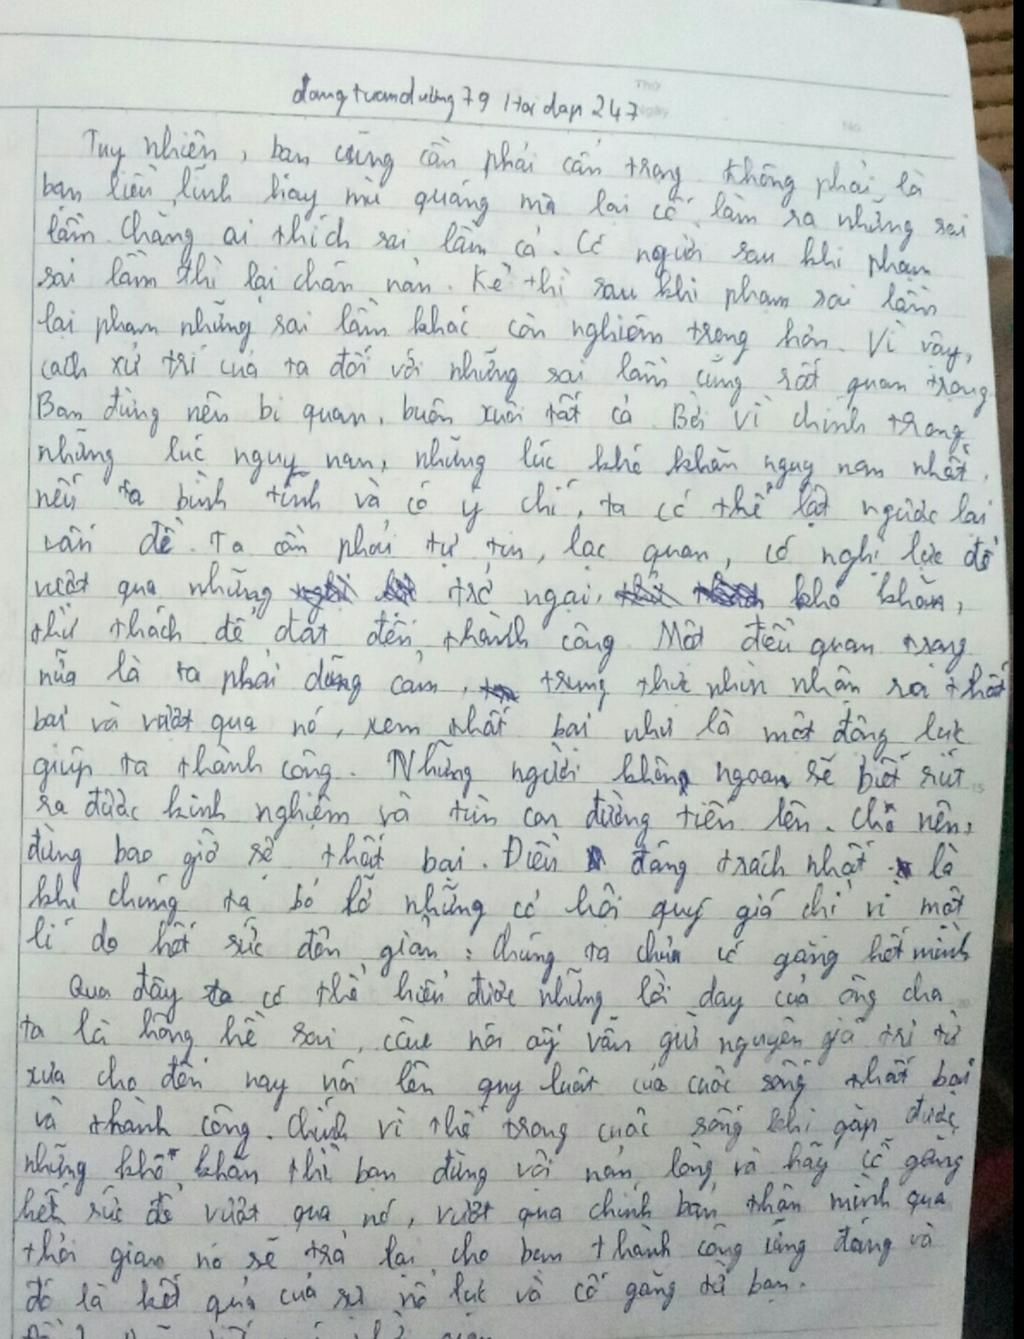 dangtuanduong79 Hoi dap 247
Tuy nhiên, bạn cũng cần phải cẩn trọng không phải là
bạn liều lĩnh hay mù quáng mà lại cố làm ra những sai
lầm. Chẳng ai thích sai lầm cả. Có người sau khi phạm
sai lầm thì lại chán nản. Kẻ thì sau khi phạm sai lầm
lại phạm những sai lầm khác còn nghiêm trọng hơn. Vì vậy,
cách xử trí của ta đối với những sai lầm cũng rất quan trọng
Bạn đừng nên bi quan, buồn xuôi tất cả. Bởi vì chính trong
những lúc nguy nan, những lúc khó khăn nguy nan nhất,
nếu ta bình tĩnh và có ý chí, ta có thể lật ngược lại
vấn đề. Ta cần phải tự tin, lạc quan, có nghị lực để
vượt qua những trở ngại, khó khăn,
thử thách để đạt đến thành công. Một điều quan trọng
nữa là ta phải dũng cảm, trung thực nhìn nhận ra thất
bại và vượt qua nó, xem thất bại như là một động lực
giúp ta thành công. Những người khôn ngoan sẽ biết rút
ra được kinh nghiệm và tìm con đường tiến lên. Cho nên,
đừng bao giờ sợ thất bại. Điều đáng trách nhất là
khi chúng ta bỏ lỡ những cơ hội quý giá chỉ vì một
lí do hết sức đơn giản: chúng ta chưa cố gắng hết mình
Qua đây ta có thể hiểu được những lời dạy của ông cha
ta là hông hề sai, câu nói ấy vẫn giữ nguyên giá trị từ
xưa cho đến nay nói lên quy luật của cuộc sống thất bại
và thành công. Chính vì thế trong cuộc sống khi gặp được
những khó khăn thì bạn đừng vội nản lòng và hãy cố gắng
hết sức để vượt qua nó, vượt qua chính bản thân mình qua
thời gian nó sẽ trả lại cho bạn thành công xứng đáng và
đó là kết quả của sự nỗ lực và cố gắng từ bạn.